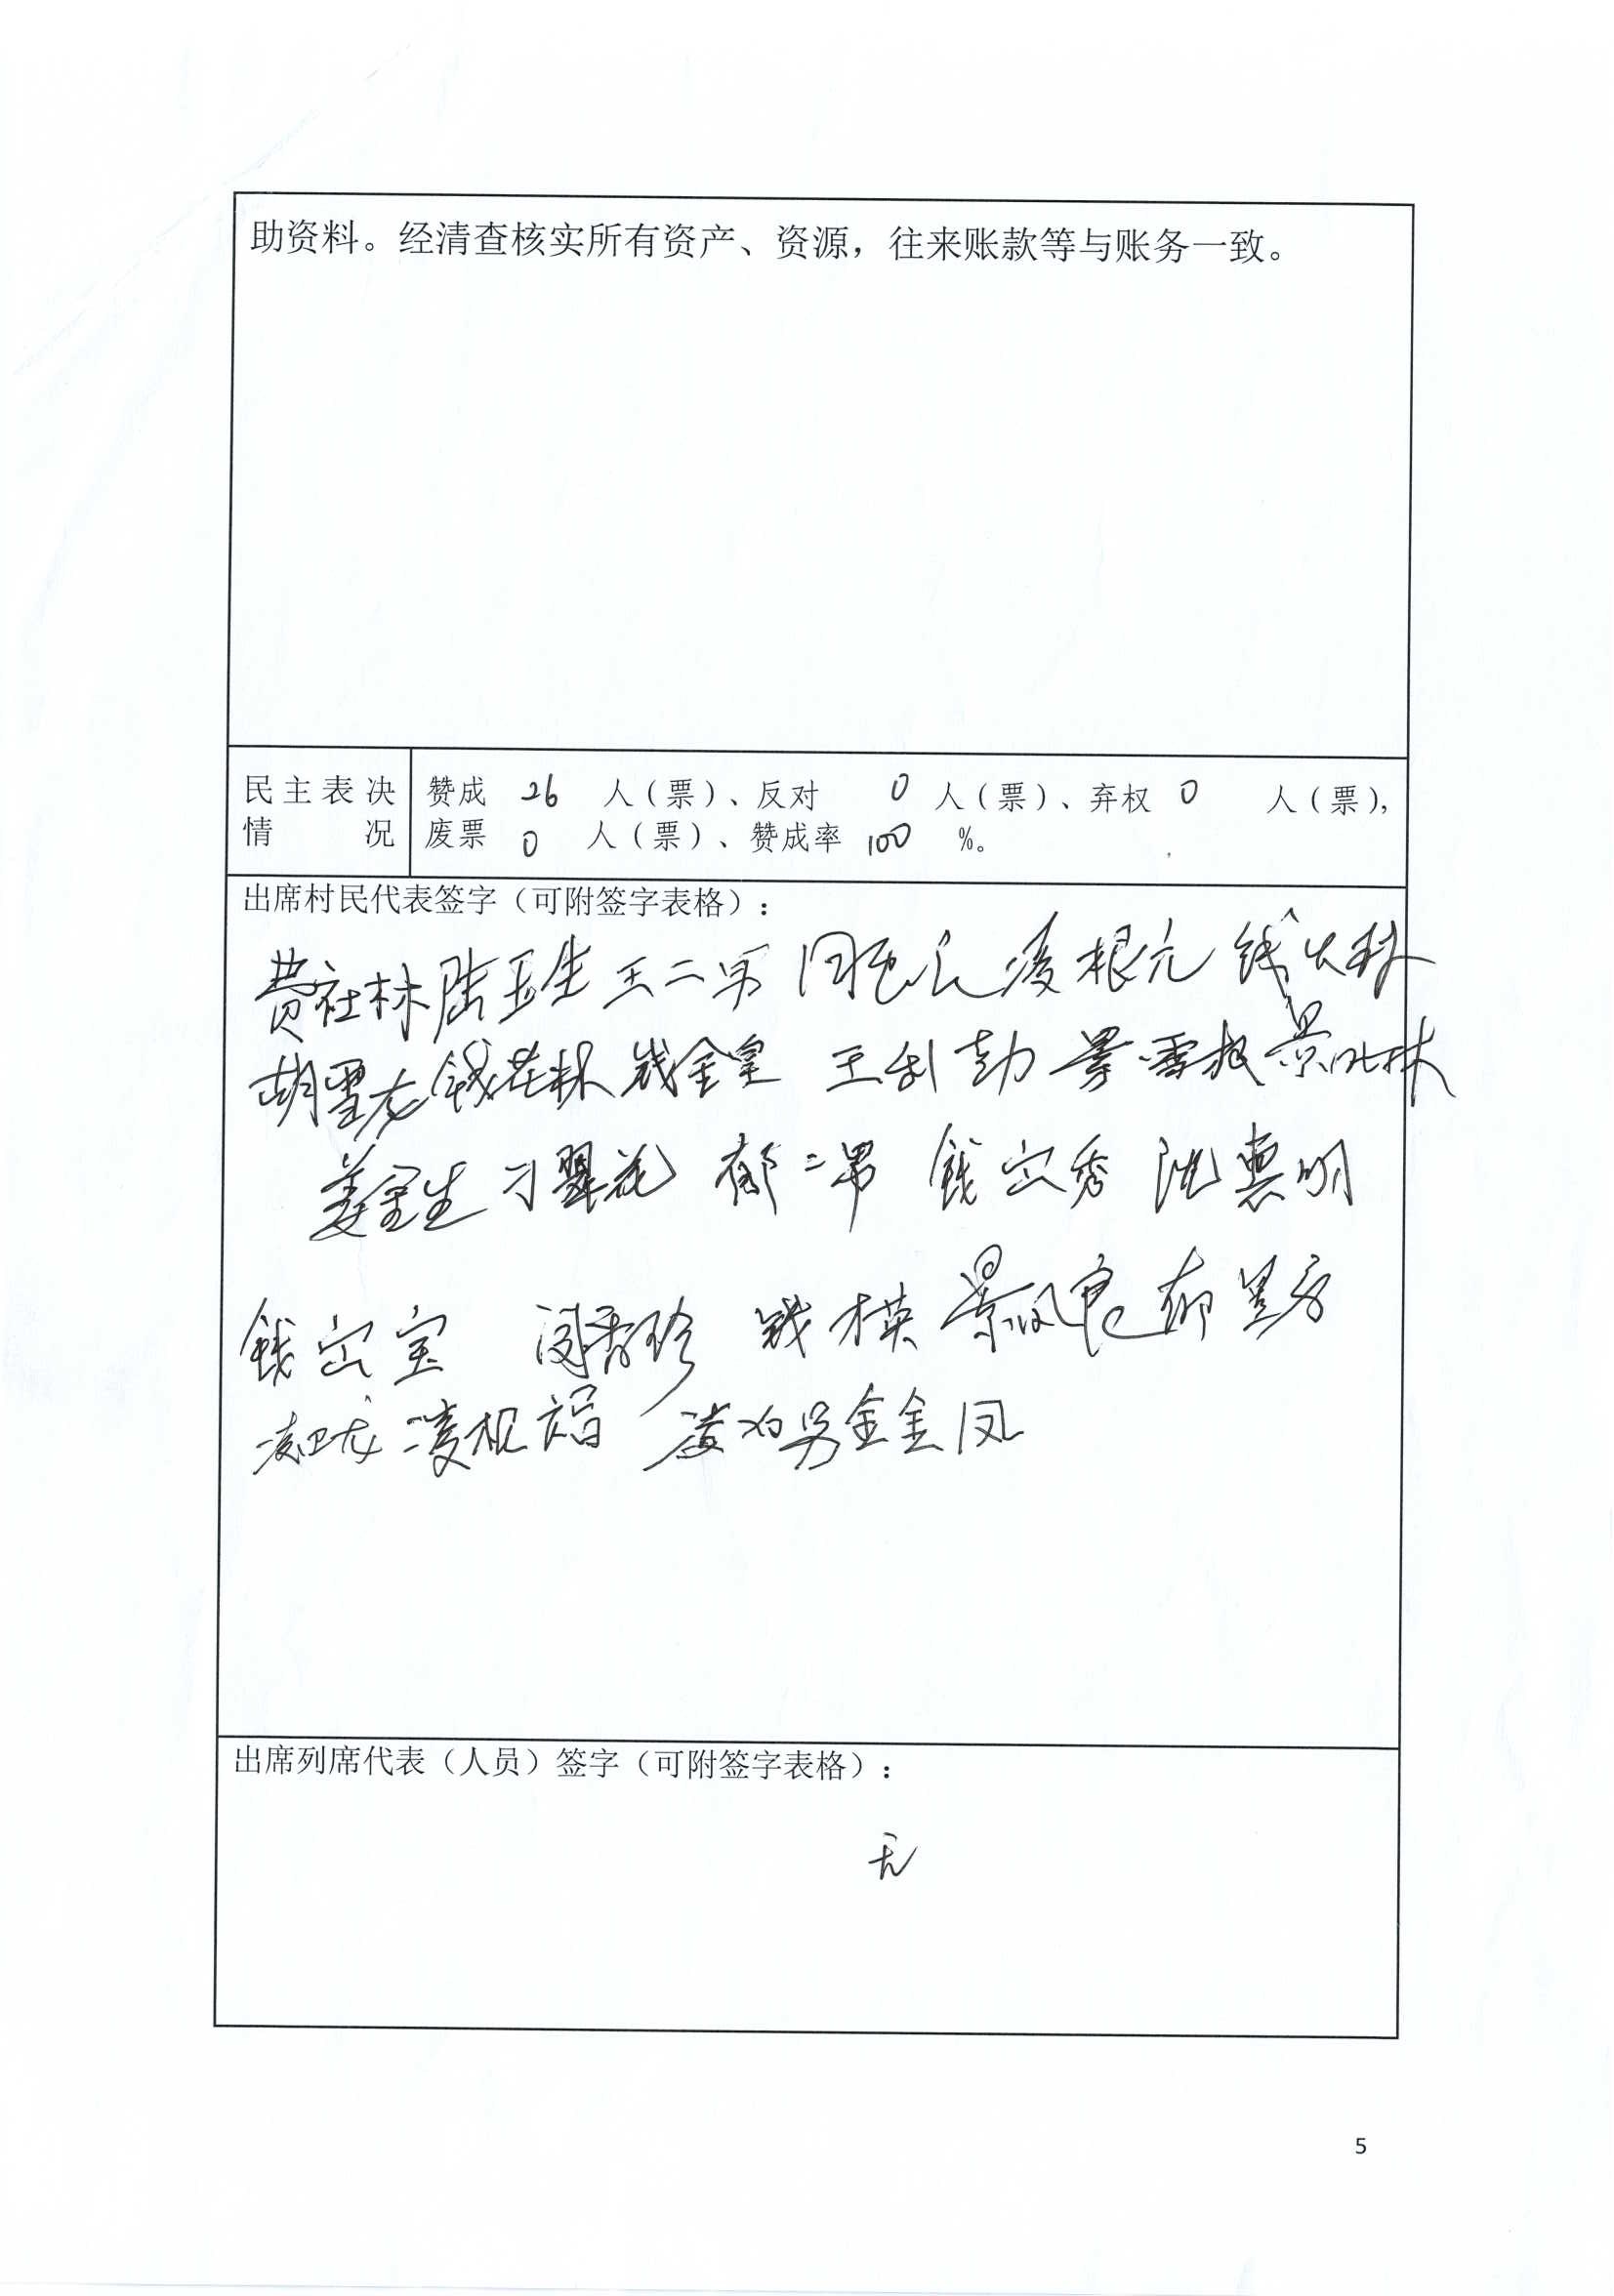 助资料。经清查核实所有资产、资源，往来账款等与账务一致。
民主表决情况
赞成 26 人（票）、反对 0 人（票）、弃权 0 人（票），
废票 0 人（票）、赞成率 100 %。
出席村民代表签字（可附签字表格）：
费社林 陆玉生 王二男 凌根元 钱火林
胡雪龙 钱花林 钱金皇
姜金生 刁翠花 郁二男 钱宝秀 沈惠明
钱宝宝 闵香珍 钱木英 景凤良
凌卫龙 凌根福 金金凤
出席列席代表（人员）签字（可附签字表格）：
无
5